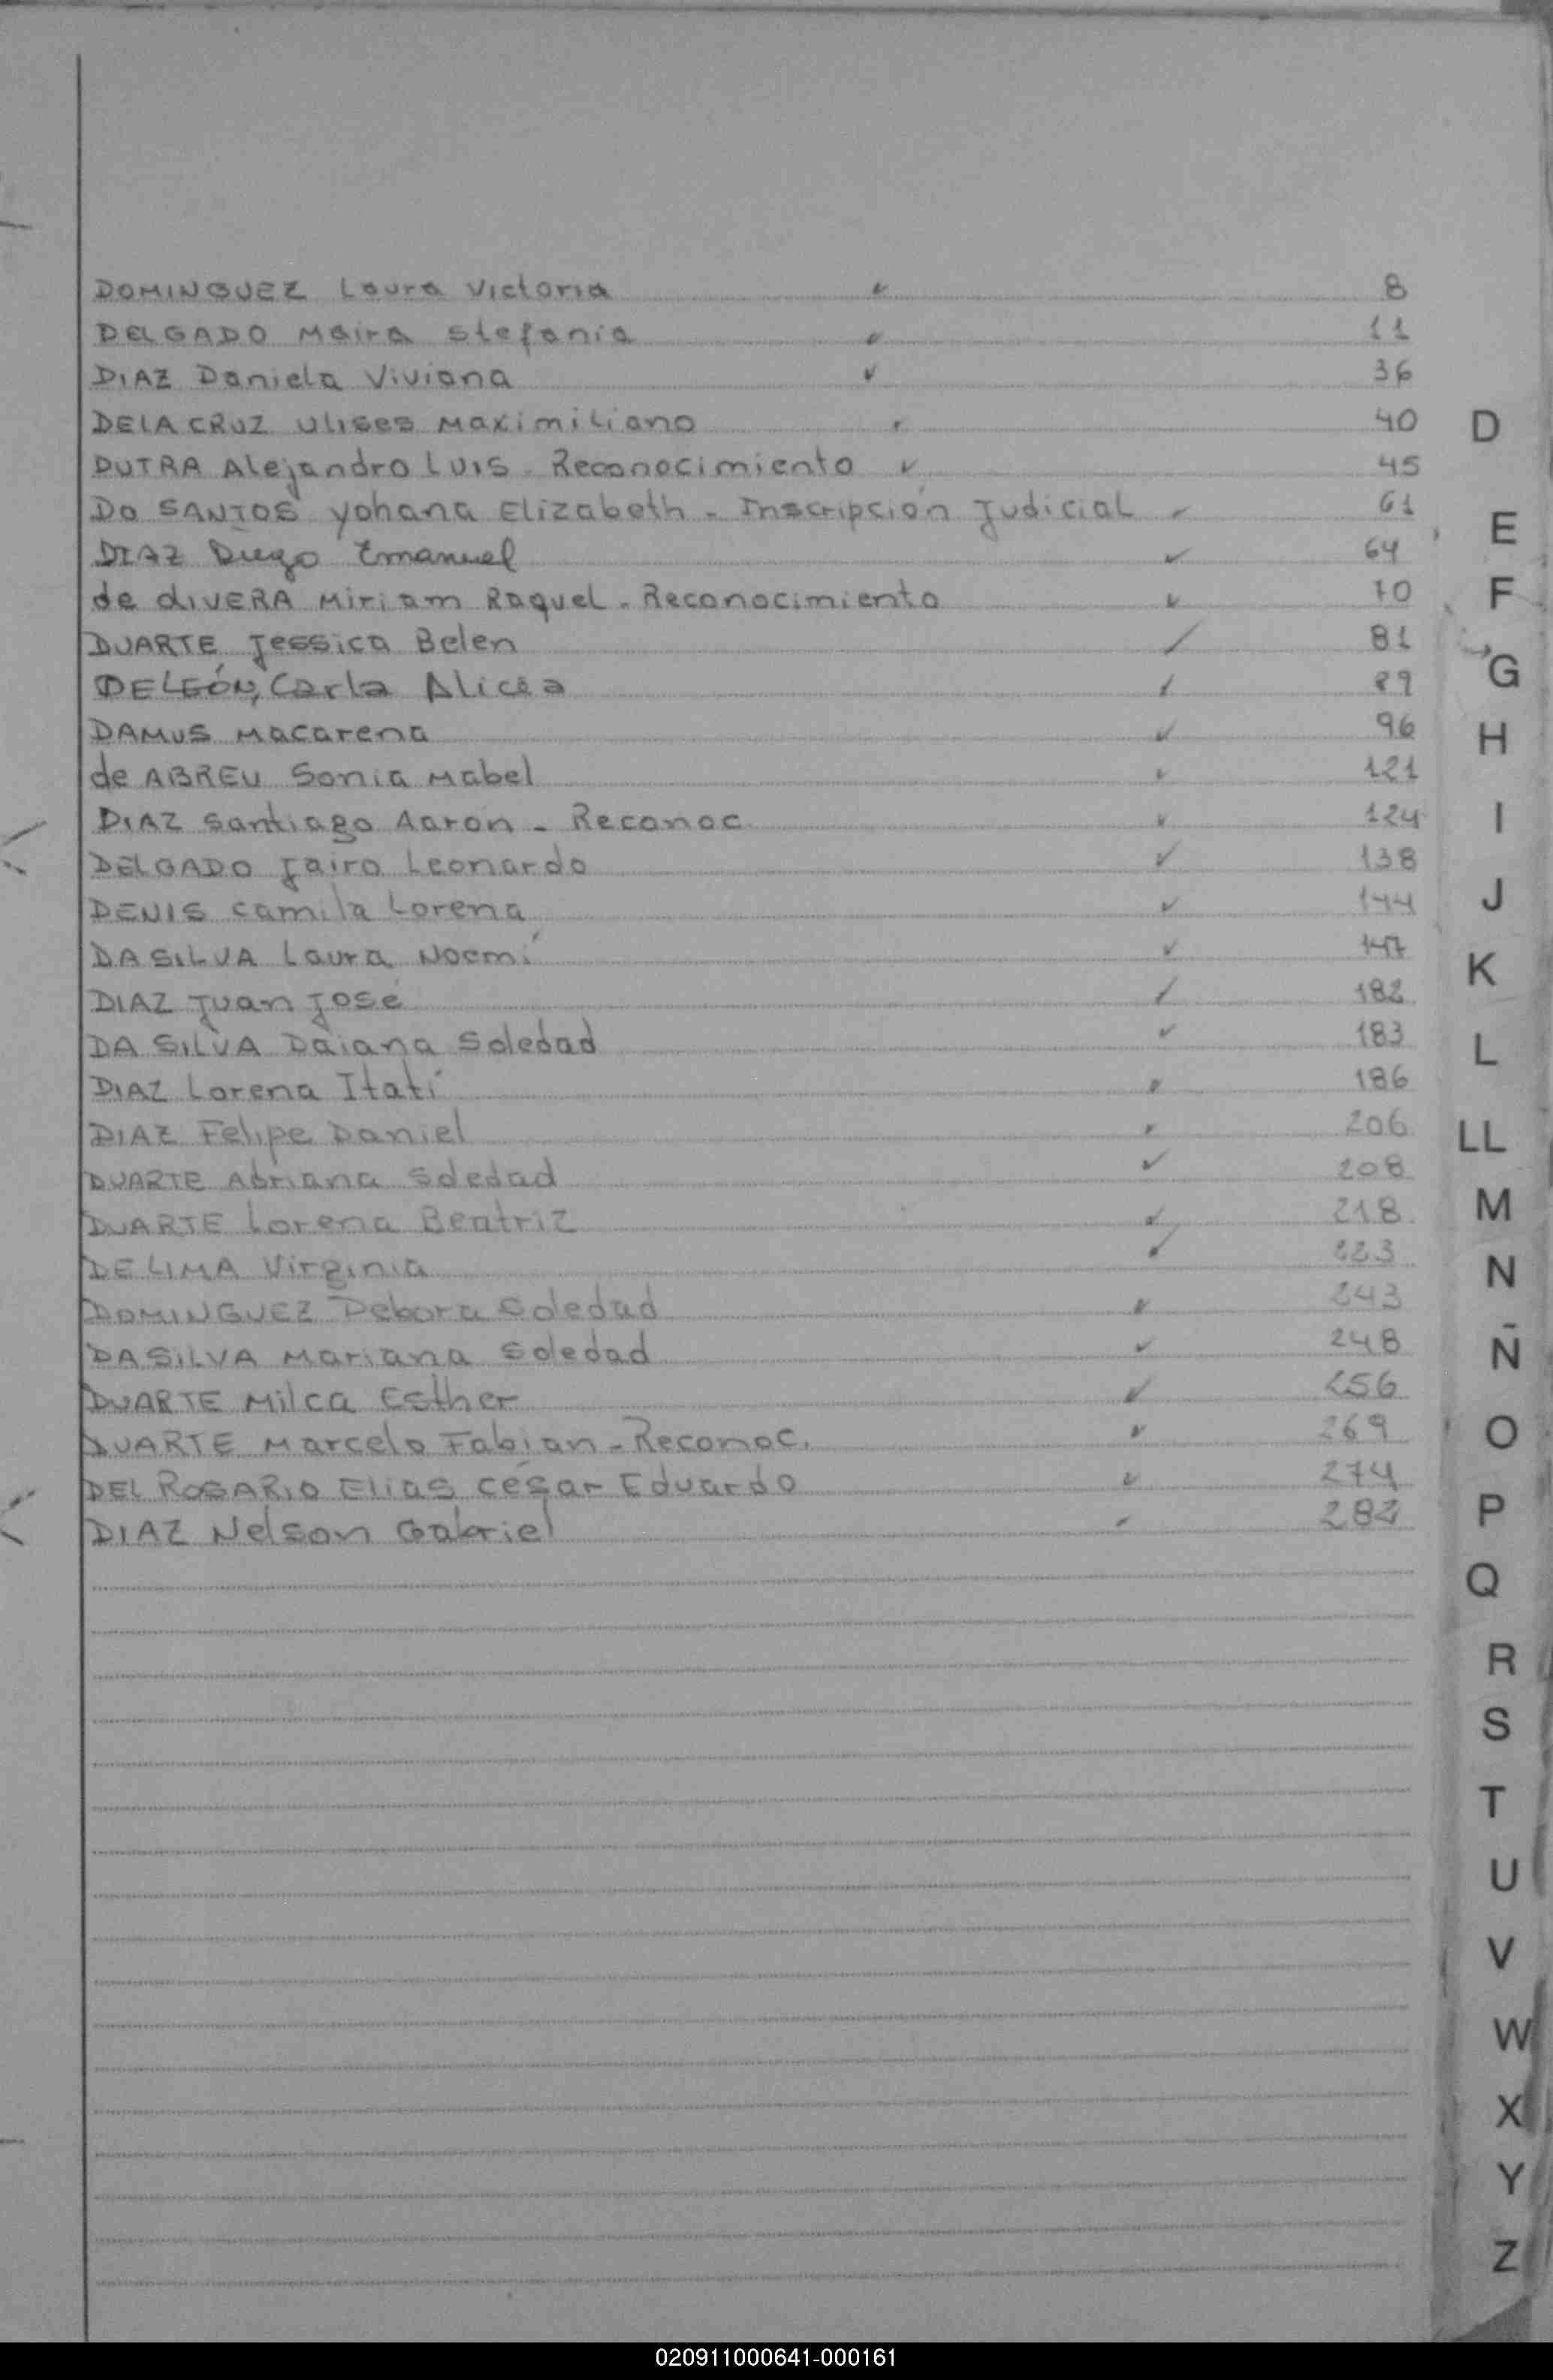 DOMINGUEZ Laura Victoria ✓ 8
DELGADO Maira Stefania ✓ 11
DIAZ Daniela Viviana ✓ 36
DELA CRUZ Ulises Maximiliano ✓ 40
DUTRA Alejandro Luis - Reconocimiento ✓ 45
Do SANTOS Yohana Elizabeth - Inscripción Judicial ✓ 61
DIAZ Diego Emanuel ✓ 64
de OLIVERA Miriam Raquel - Reconocimiento ✓ 70
DUARTE Jessica Belen ✓ 81
DELEÓN, Carla Alicia ✓ 89
DAMUS Macarena ✓ 96
de ABREU Sonia Mabel ✓ 121
DIAZ Santiago Aaron - Reconoc. ✓ 124
DELGADO Jairo Leonardo ✓ 138
DENIS Camila Lorena ✓ 144
DA SILVA Laura Noemí ✓ 147
DIAZ Juan José ✓ 182
DA SILVA Daiana Soledad ✓ 183
DIAZ Lorena Itatí ✓ 186
DIAZ Felipe Daniel ✓ 206
DUARTE Adriana Soledad ✓ 208
DUARTE Lorena Beatriz ✓ 218
DE LIMA Virginia ✓ 223
DOMINGUEZ Debora Soledad ✓ 243
DA SILVA Mariana Soledad ✓ 248
DUARTE Milca Esther ✓ 256
DUARTE Marcelo Fabian - Reconoc. ✓ 269
DEL ROSARIO Elias César Eduardo ✓ 274
DIAZ Nelson Gabriel ✓
D
E
F
G
H
I
J
K
L
LL
M
N
Ñ
O
P
Q
R
S
T
U
V
W
X
Y
Z
020911000641-000161